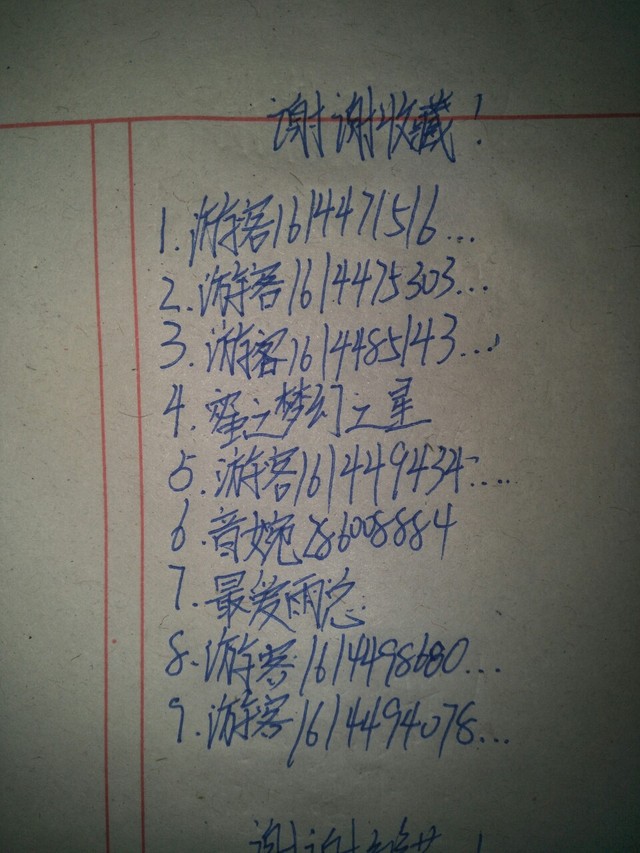 谢谢收藏！
1.游客1614471516...
2.游客1614475303...
3.游客1614485143...
4.蜜之梦幻之星
5.游客1614494345....
6.音婉286008884
7.最爱雨念
8.游客1614498680...
9.游客1614494078...
谢谢